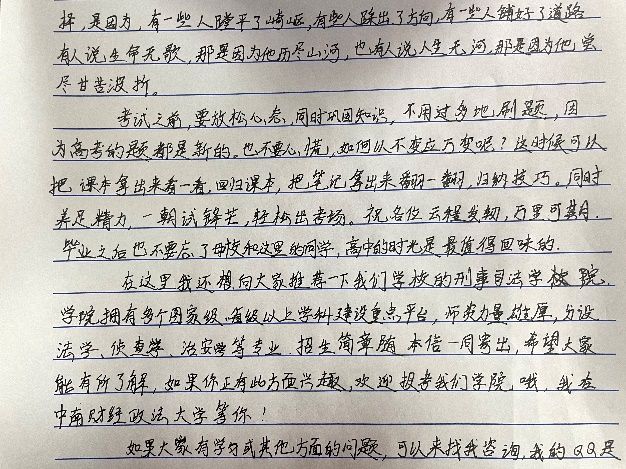 择，是因为，有一些人蹚平了崎岖，有些人踩出了方向，有一些人铺好了道路
有人说生命无歌，那是因为他历尽山河，也有人说人生无河，那是因为他尝
尽甘苦波折。
考试之前，要放松心态，同时巩固知识，不用过多地刷题，因
为高考的题都是新的。也不要心慌，如何以不变应万变呢？这时候可以
把课本拿出来看一看，回归课本，把笔记拿出来翻一翻，归纳技巧。同时
养足精力，一朝试锋芒，轻松出考场。祝各位云程发轫，万里可期。
毕业之后也不要忘了母校和这里的同学，高中的时光是最值得回味的.
在这里我还想向大家推荐一下我们学校的刑事司法学院，
学院拥有多个国家级、省级以上学科建设重点平台，师资力量雄厚，分设
法学、侦查学、治安学等专业 招生简章随本信一同寄出，希望大家
能有所了解，如果你正有此方面兴趣，欢迎报考我们学院，哦，我在
中南财经政法大学等你！
如果大家有学习或其他方面的问题，可以来找我咨询，我的QQ是